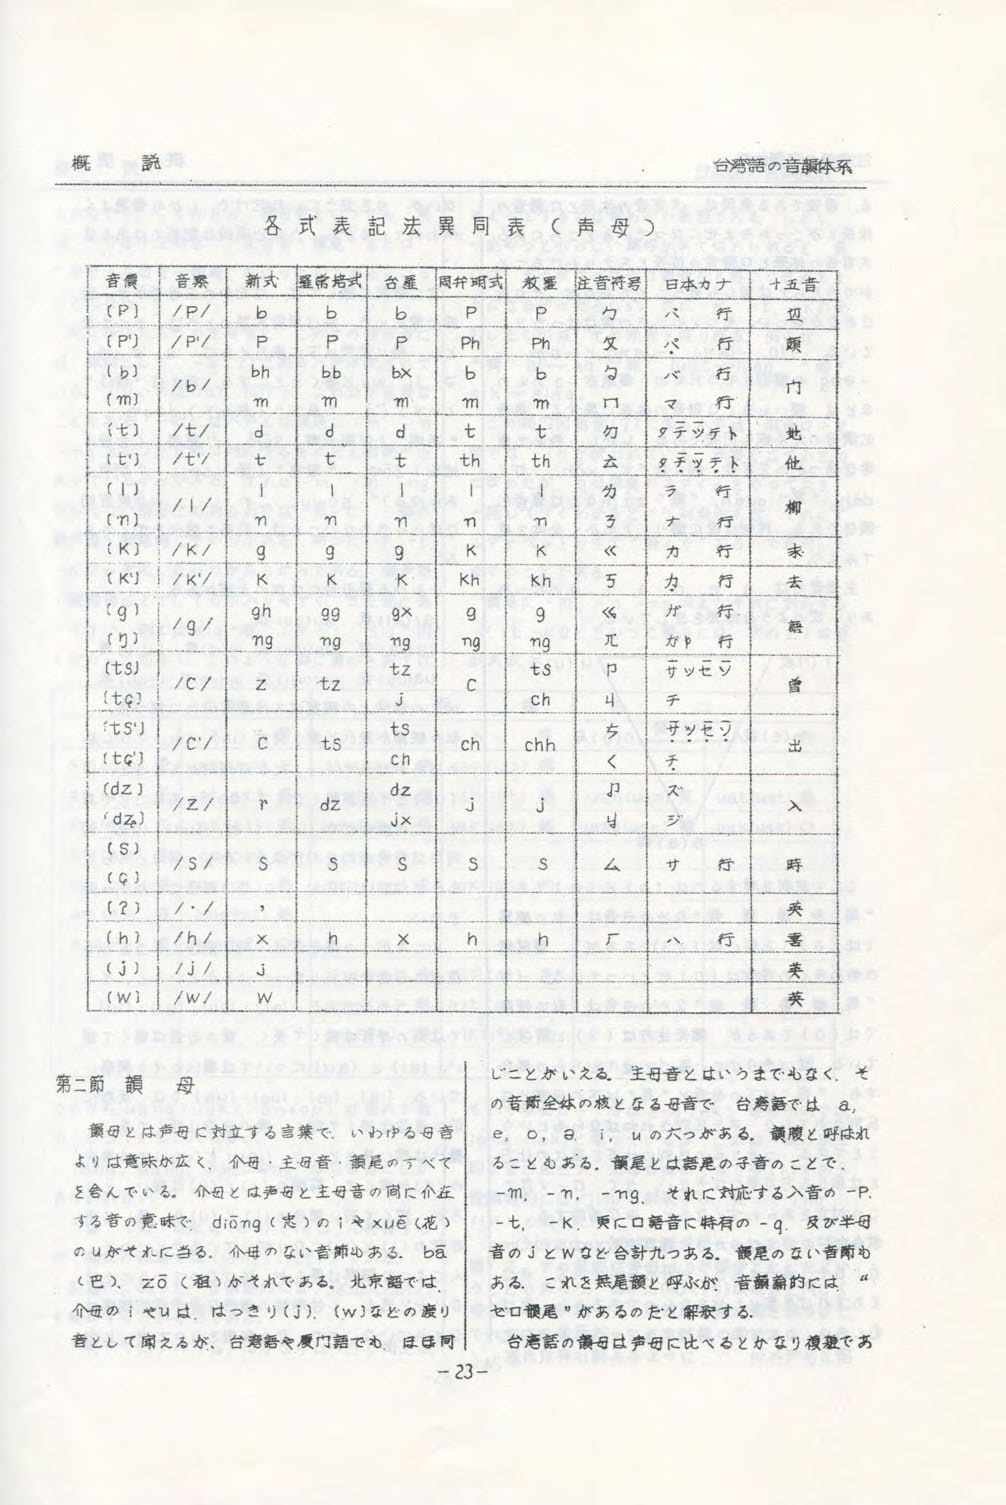 概　説
台湾語の音韻体系
各式表記法異同表（声母）
音價 音素 新式 羅常培式 台羅 周弁明式 教羅 注音符号 日本カナ 十五音
(P) /P/ b b b P P ㄅ パ 行 边
(P') /P'/ P P P Ph Ph ㄆ パ 行 頗
(b) /b/ bh bb bx b b バ 行 门
(m) m m m m m ㄇ マ 行
(t) /t/ d d d t t ㄉ タチツテト 地
(t') /t'/ t t t th th ㄊ タチツテト 他
(l) /l/ l l l l l ㄌ ラ 行 柳
(n) n n n n n ㄋ ナ 行
(K) /K/ g g g K K ㄍ カ 行 求
(K') /K'/ K K K Kh Kh ㄎ カ 行 去
(g) /g/ gh gg gx g g ガ 行 語
(ŋ) ng ng ng ng ng ㄫ ガ 行
(ts) /C/ z tz tz C ts ㄗ サツセソ 曽
(tɕ) j ch ㄐ チ
(ts') /C'/ C ts ts ch chh ㄘ サツセソ 出
(tɕ') ch ㄑ チ
(dz) /Z/ r dz dz j j ズ 入
(dʑ) jx ジ
(S) /S/ S S S S S ㄙ サ 行 時
(Ç)
(?) /・/ , 英
(h) /h/ x h x h h ㄏ ハ 行 喜
(j) /j/ j 英
(w) /w/ w 英
第二節　韻　母
韻母とは声母に対立する言葉で、いわゆる母音
よりは意味が広く、介母・主母音・韻尾のすべて
を含んでいる。介母とは声母と主母音の間に介在
する音の意味で、diōng（忠）のiやxuē（花）
のuがそれに当る。介母のない音節もある。bā
（巴）、zō（租）がそれである。北京語では、
介母のiやuは、はっきり(j)、(w)などの渡り
音として聞えるが、台湾語や厦门語でも、ほぼ同
じことがいえる。主母音とはいうまでもなく、そ
の音節全体の核となる母音で、台湾語では a,
e, o, ə, i, uの六つがある。韻腹と呼ばれ
ることもある。韻尾とは語尾の子音のことで、
-m, -n, -ng、それに対応する入音の -P,
-t, -K、更に口語音に特有の -q、及び半母
音のjとwなど合計九つある。韻尾のない音節も
ある。これを無尾韻と呼ぶが、音韻論的には、“
ゼロ韻尾”があるのだと解釈する。
台湾語の韻母は声母に比べるとかなり複雑であ
-23-